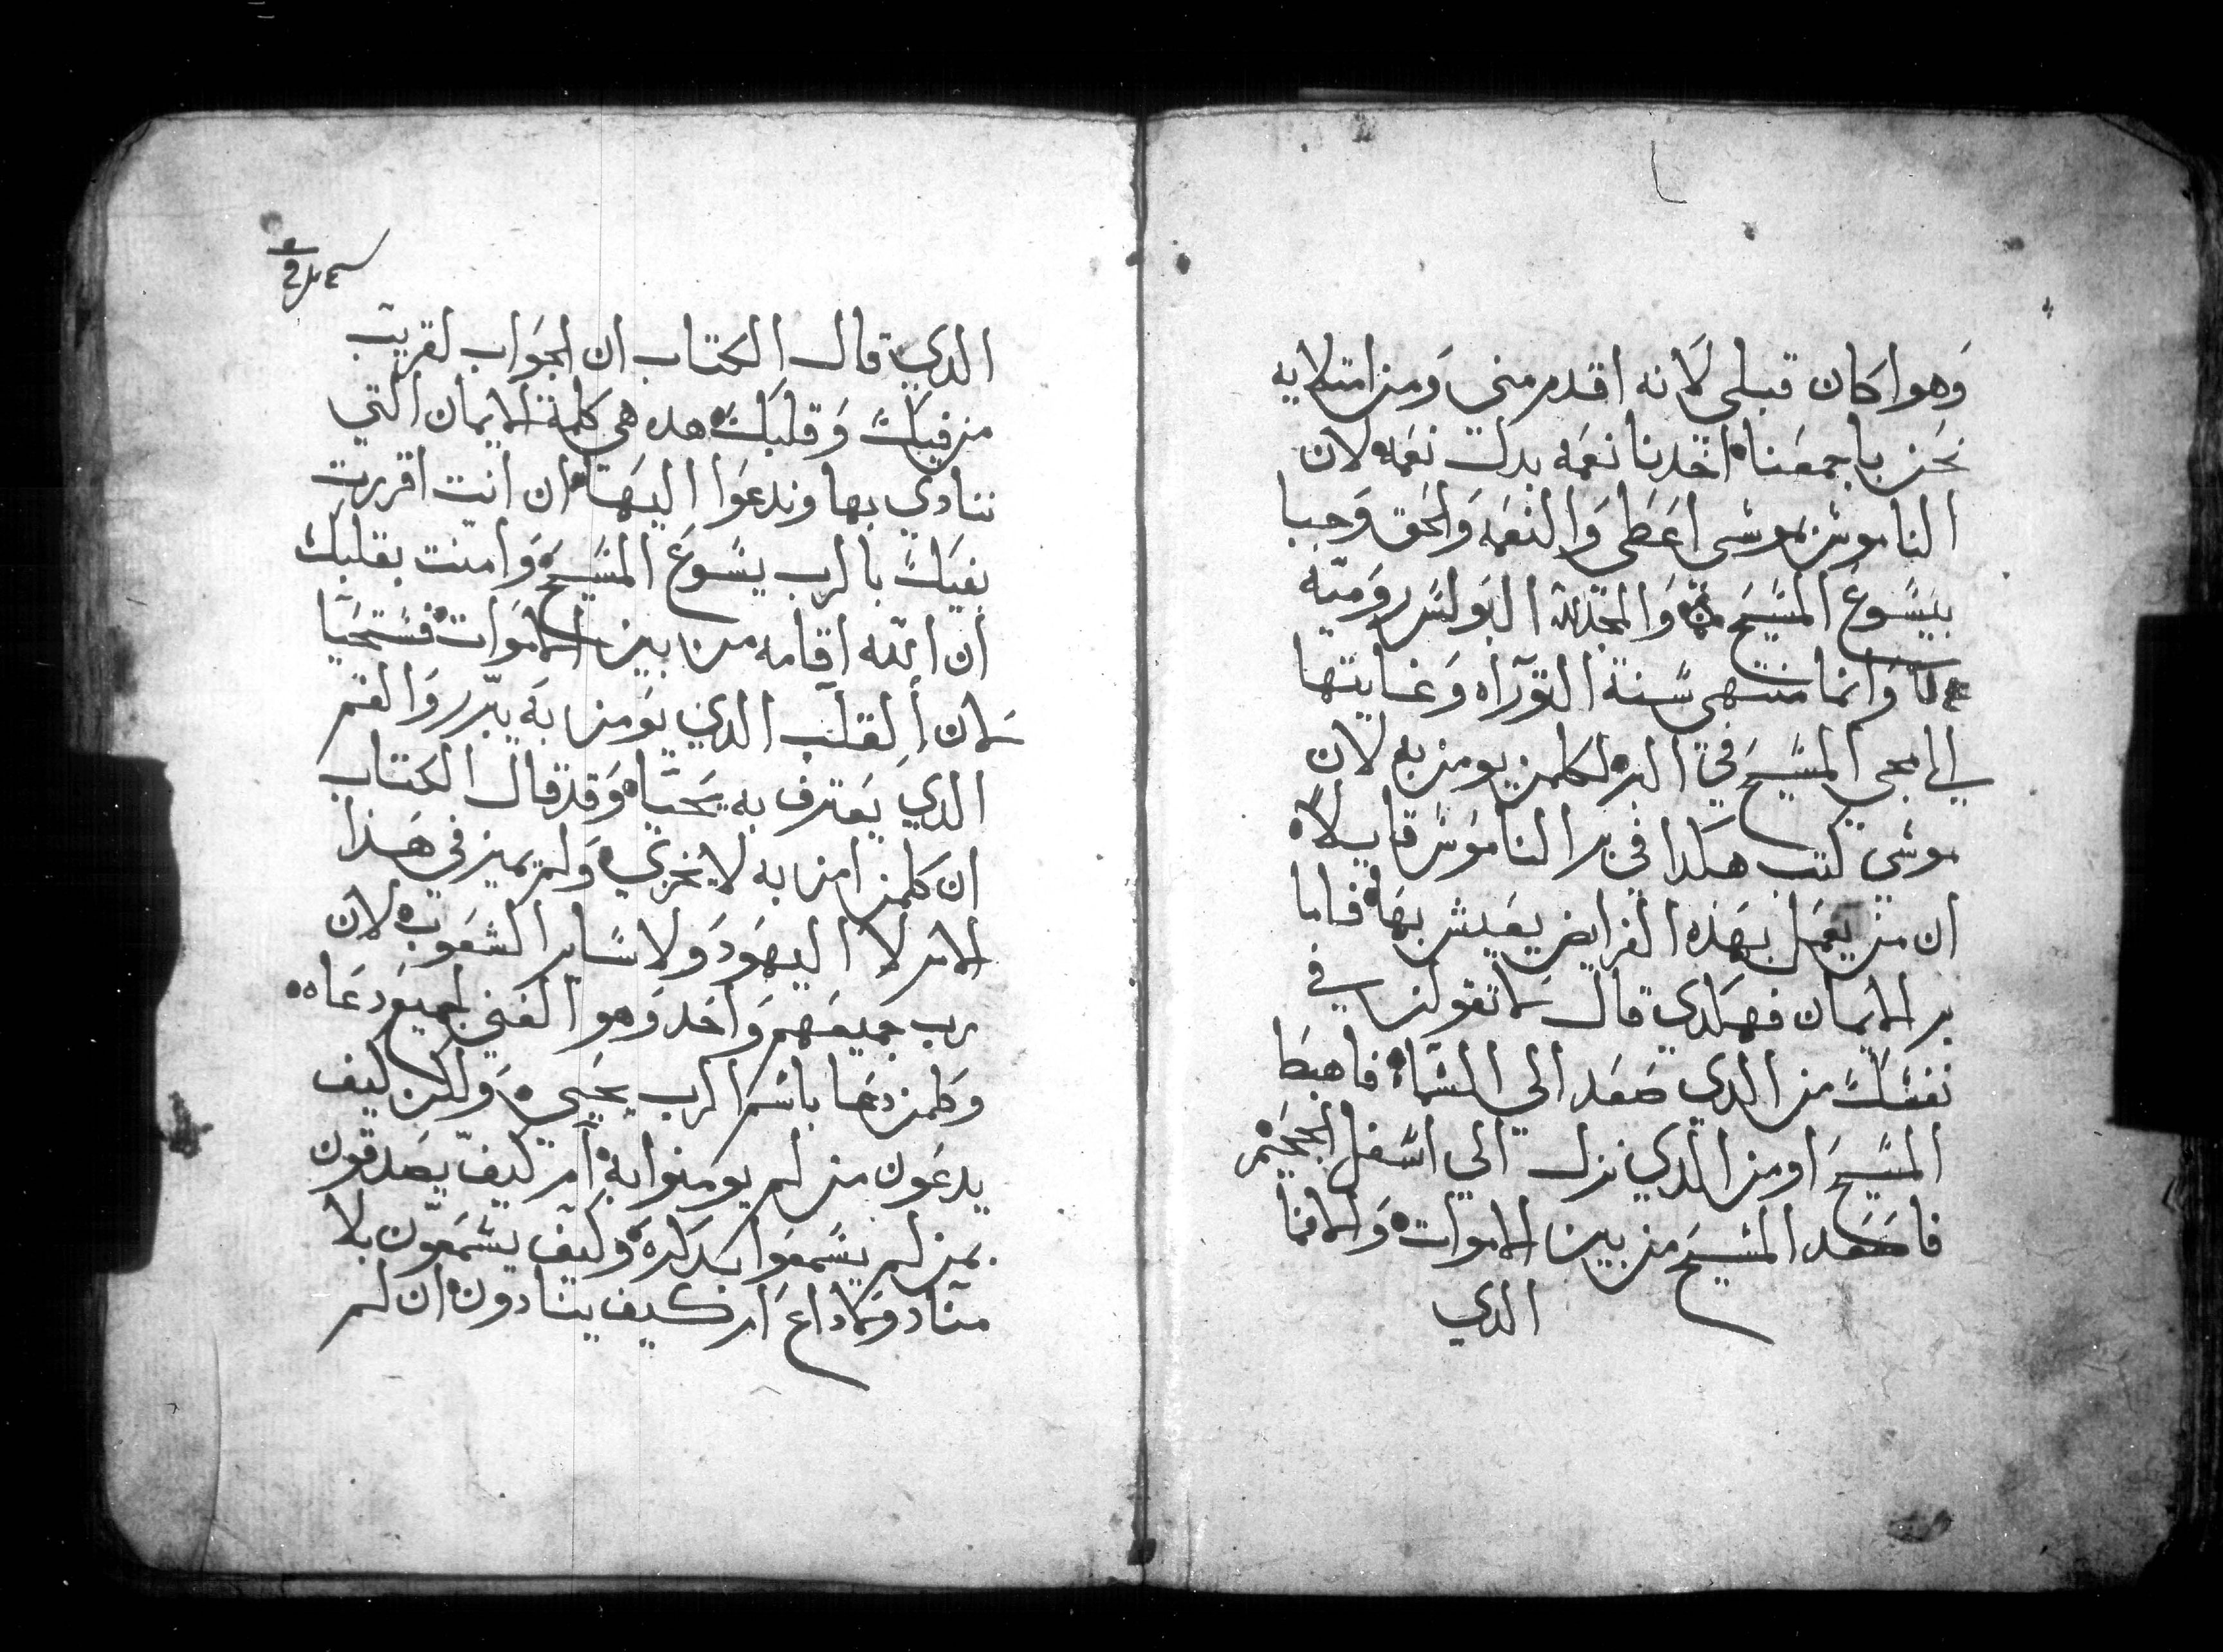 وهوا كان قبلي لانه اقدم مني ومن امتلايه
نحن باجمعنا اخدنا نعمه بدل نعمه لان
الناموس بموسى اعطى والنعمه والحق وجبا
بيسوع المسيح والمجد لله البولس روميه
وانما منتهى سنة التوراه وغايتها
الى مجي المسيح في البر لكلمن يومن به لان
موسى كتب هكدا في بر الناموس قايلا
ان من يعمل بهذه الفرايض يعيش بها فاما
بر الايمان فهكدي قال لا تقولن في
نفسك من الدي صعد الى السماء فاهبط
المسيح اومن الدي نزل الى اسفل الجحيم
فاصعد المسيح من بين الاموات وانما
الدي
الدي قال الكتاب ان الجواب لقريب
من فيك وقلبك هده هى كلمة الايمان التي
ننادي بها وندعوا اليها ان انت اقررت
بفيك بالرب يسوع المسيح وامنت بقلبك
ان الله اقامه من بين الاموات فستحيا
لان القلب الدي يومن به يبرر والفم
الدي يعترف به يحيا وقد قال الكتاب
ان كلمن امن به لا يخزي ولم يميز في هذا
الامر لا اليهود ولا ساير الشعوب لان
رب جميعهم واحد وهو الغني لجميع دعاه
وكلمن دعا باسم الرب يحيى ولكن كيف
يدعون من لم يومنوا به ام كيف يصدقون
بمن لم يسمعوا بدكره وكيف يسمعون بلا
مناد ولا داع ام كيف ينادون ان لم